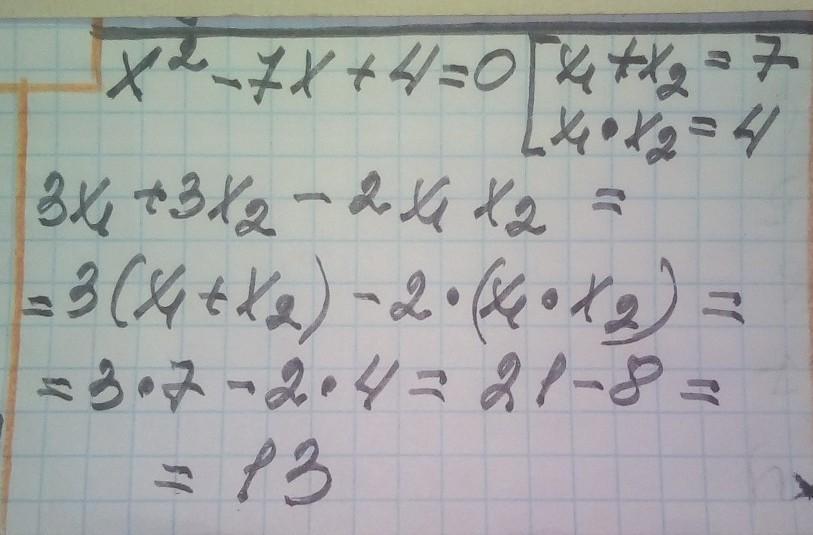 x² - 7x + 4 = 0 [ x₁ + x₂ = 7
x₁ • x₂ = 4
3x₁ + 3x₂ - 2x₁ x₂ =
= 3(x₁ + x₂) - 2 • (x₁ • x₂) =
= 3 • 7 - 2 • 4 = 21 - 8 =
= 13